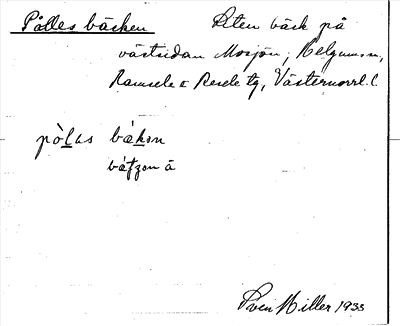 Pålles bäcken Liten bäck på
västsidan Mosjön, Helgumsn,
Ramsele o Resele tg, Västernorrl. l.
pòlas bäkən
Sven Hiller 1935